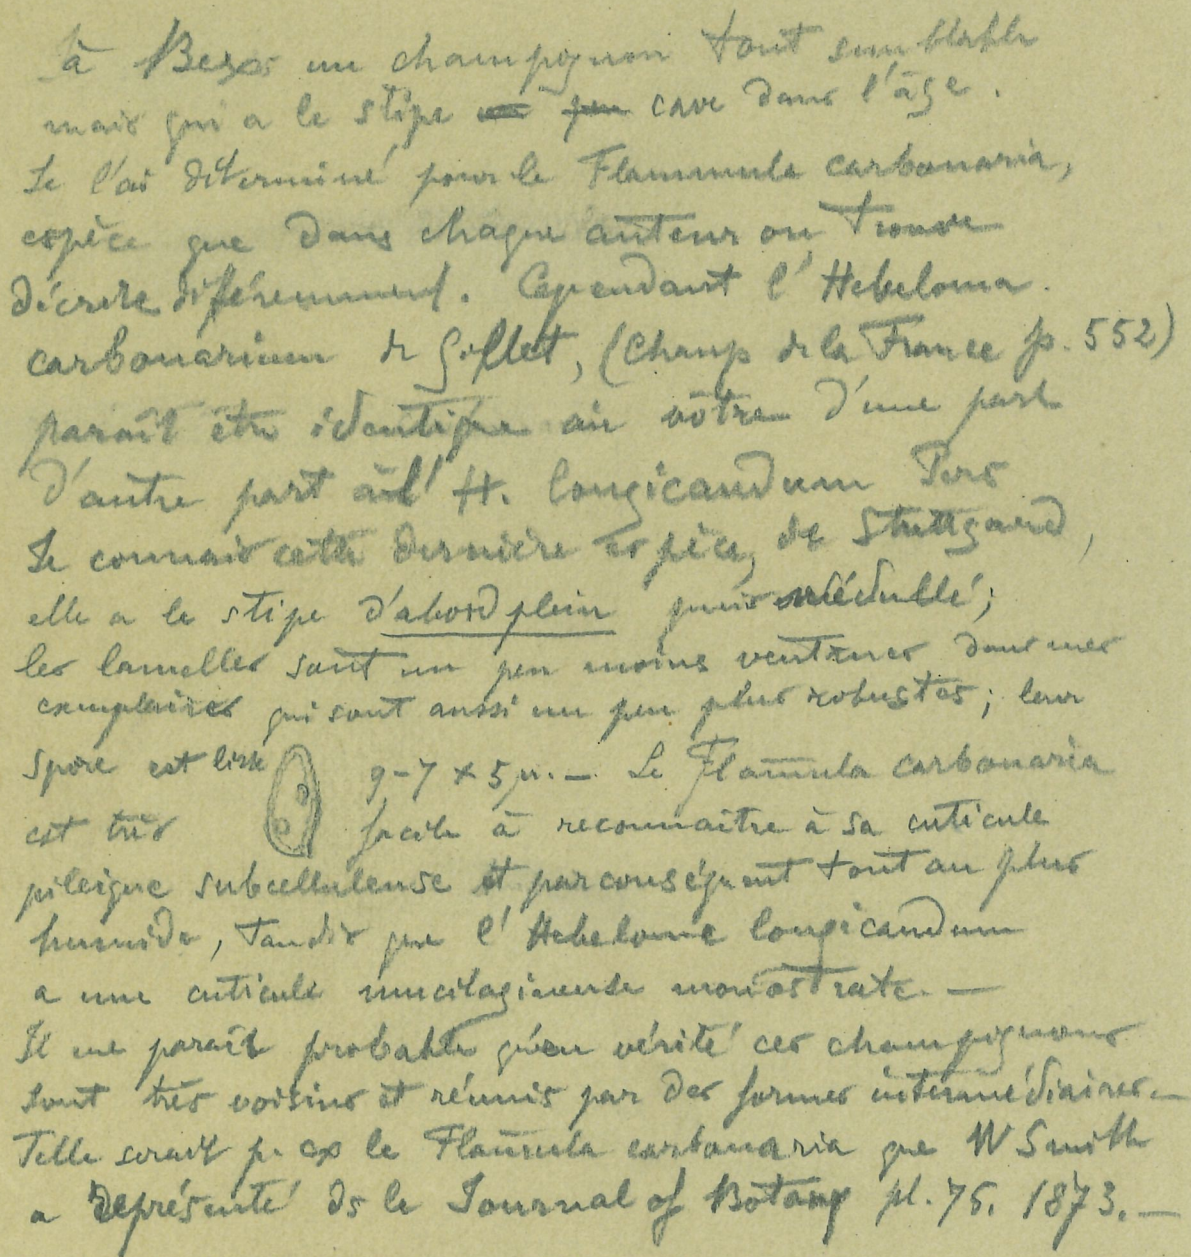 à Bex un champignon tout semblable
mais qui a le stipe cave dans l'âge.
Je l'ai déterminé pour le Flammula carbonaria,
espèce que dans chaque auteur on trouve
décrite diféremment. Cependant l'Hebeloma
carbonarium de Gillet, (Champ de la France p. 552)
paraît être identique au vôtre d'une part
d'autre part à l'H. longicaudum Pers
Je connais cette dernière espèce, de Stuttgard,
elle a le stipe d'abord plein puis médullé;
les lamelles sont un peu moins ventrues dans mes
exemplaires qui sont aussi un peu plus robustes; leur
spore est lisse 9-7 x 5 µ. — Le Flam̄ula carbonaria
est très facile à reconnaître à sa cuticule
piléique subcelluleuse et par conséquent tout au plus
humide, tandis que l'Hebelome longicaudum
a une cuticule mucilagineuse monostrate. —
Il me paraît probable qu'en vérité ces champignons
sont très voisins et réunis par des formes intermédiaires. —
Telle serait p. ex le Flam̄ula carbonaria que W Smith
a représenté ds le Journal of Botany pl. 75. 1873. —